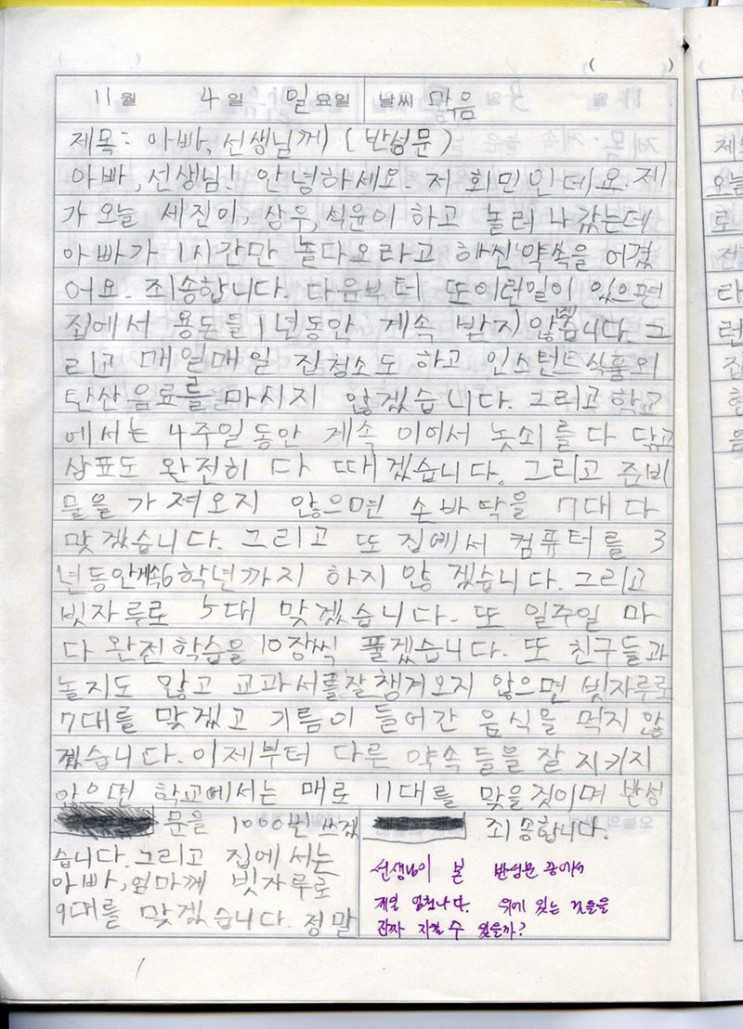 11월 4일 일요일 날씨 맑음
제목: 아빠, 선생님께 (반성문)
아빠, 선생님! 안녕하세요. 저 희민인데요. 제
가 오늘 세진이, 상우, 식윤이 하고 놀러 나갔는데
아빠가 1시간만 놀다오라고 하신 약속을 어겼
어요. 죄송합니다. 다음부터 또이런일이 있으면
집에서 용돈을 1년동안 계속 받지않겠습니다. 그
리고 매일매일 집청소도 하고 인스턴트식품외
탄산음료를 마시지 않겠습니다. 그리고 학교
에서는 4주일동안 계속 이어서 놋쇠를 다 닦고
상표도 완전히 다 때겠습니다. 그리고 준비
물을 가져오지 않으면 손바닥을 7대 다
맞겠습니다. 그리고 또 집에서 컴퓨터를 3
년동안계속6학년까지 하지 않겠습니다. 그리고
빗자루로 5대 맞겠습니다. 또 일주일 마
다 완전학습을 10장씩 풀겠습니다. 또 친구들과
놀지도 않고 교과서를잘챙겨오지 않으면 빗자루로
7대를 맞겠고 기름이 들어간 음식을 먹지 않
겠습니다. 이제부터 다른 약속들을 잘 지키지
않으면 학교에서는 매로 11대를 맞을것이며 반성
문을 1000번 쓰겠
습니다. 그리고 집에서는
아빠, 엄마께 빗자루로
9대를 맞겠습니다. 정말
죄송합니다.
선생님이 본 반성문 중에서
제일 엄청나다. 위에 있는 것들을
진짜 지킬 수 있을까?